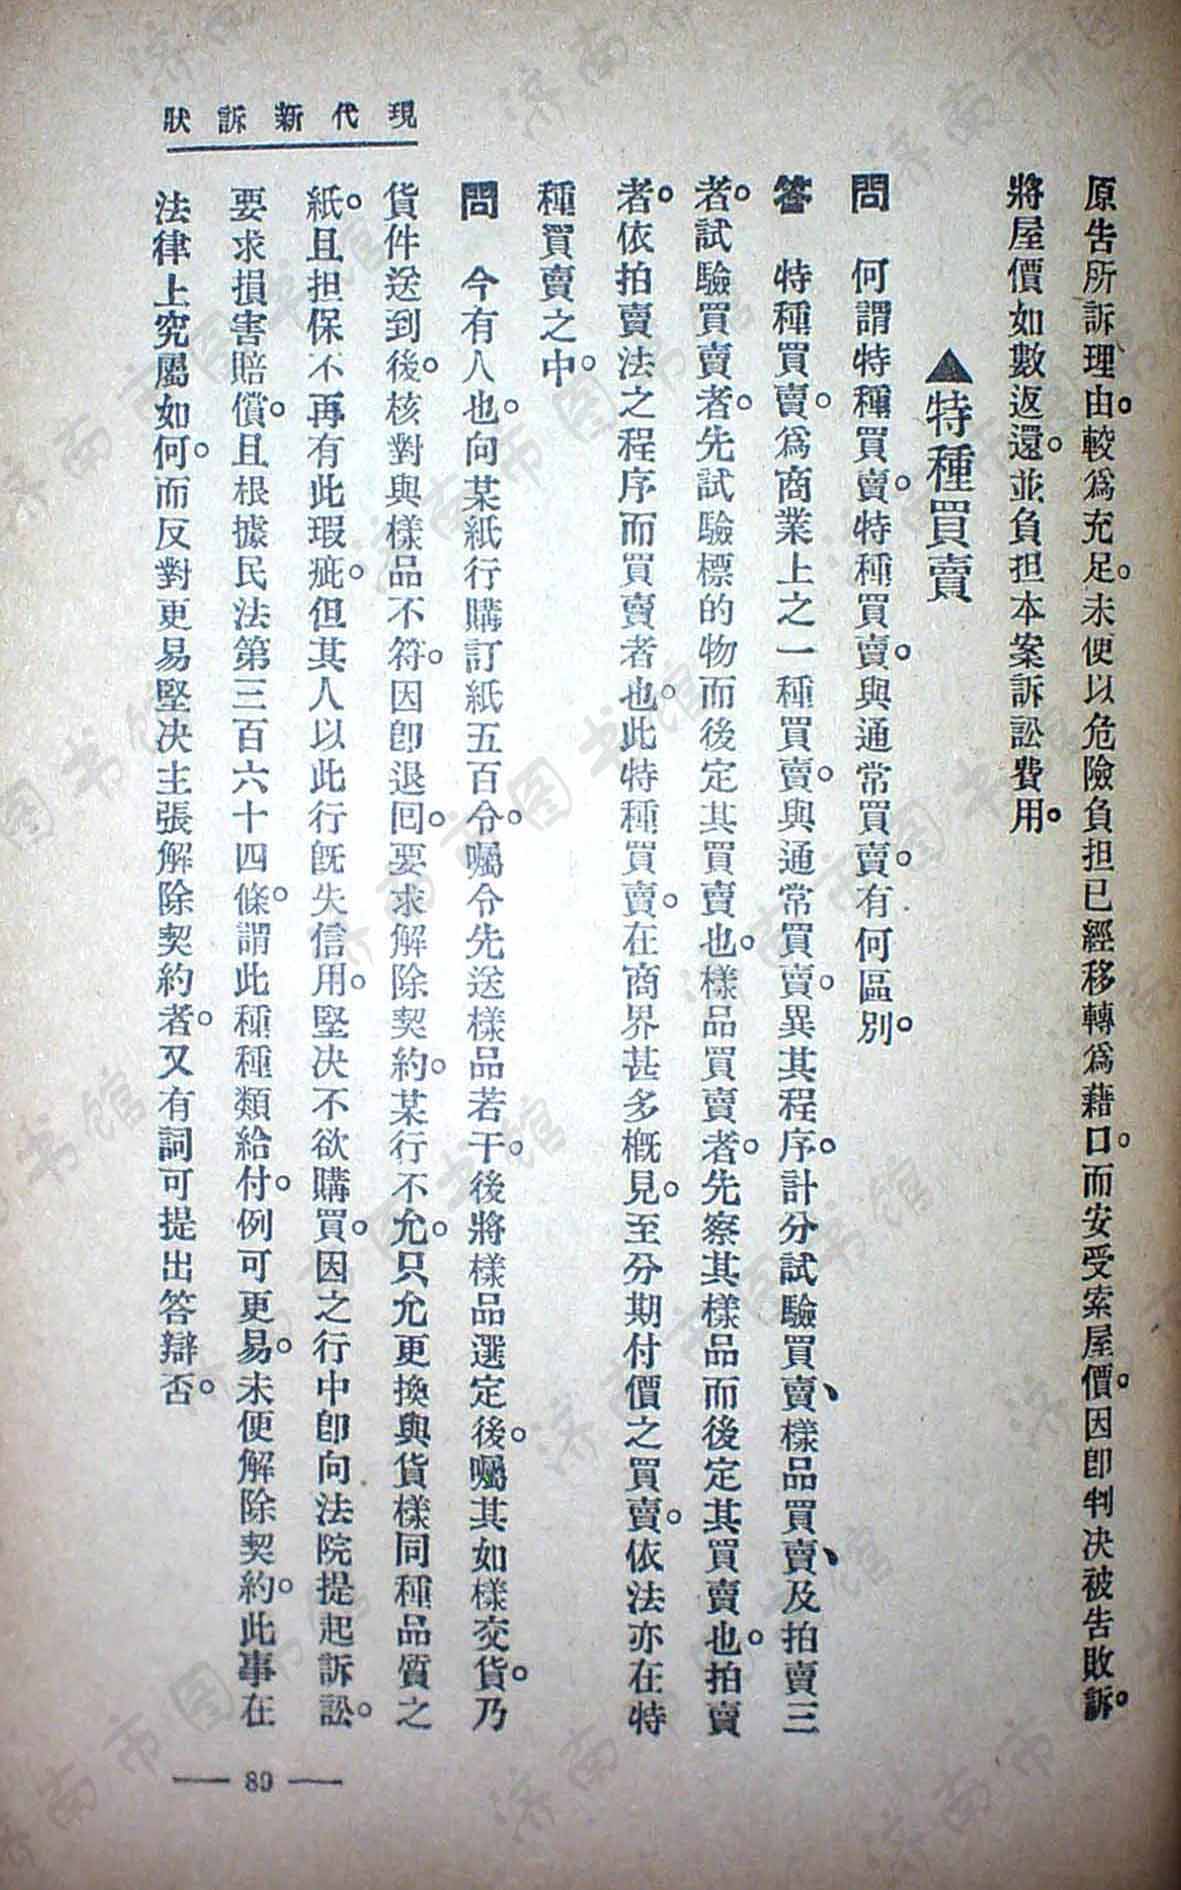 現代新訴狀
原告所訴理由。較爲充足。未便以危險負担已經移轉爲藉口。而安受索屋價。因卽判决被告敗訴。
將屋價如數返還。並負担本案訴訟費用。
▲特種買賣
問　何謂特種買賣。特種買賣。與通常買賣。有何區別。
答　特種買賣。爲商業上之一種買賣。與通常買賣。異其程序。計分試驗買賣、樣品買賣、及拍賣三
者。試驗買賣者。先試驗標的物而後定其買賣也。樣品買賣者。先察其樣品而後定其買賣也。拍賣
者。依拍賣法之程序而買賣者也。此特種買賣。在商界甚多概見。至分期付價之買賣。依法亦在特
種買賣之中。
問　今有人也。向某紙行購訂紙五百令。囑令先送樣品若干。後將樣品選定後。囑其如樣交貨。乃
貨件送到後。核對與樣品不符。因卽退回。要求解除契約。某行不允。只允更換與貨樣同種品質之
紙。且担保不再有此瑕疵。但其人以此行旣失信用。堅决不欲購買。因之行中卽向法院提起訴訟。
要求損害賠償。且根據民法第三百六十四條。謂此種種類給付。例可更易。未便解除契約。此事在
法律上究屬如何。而反對更易堅决主張解除契約者。又有詞可提出答辯否。
— 89 —
济南市图书馆